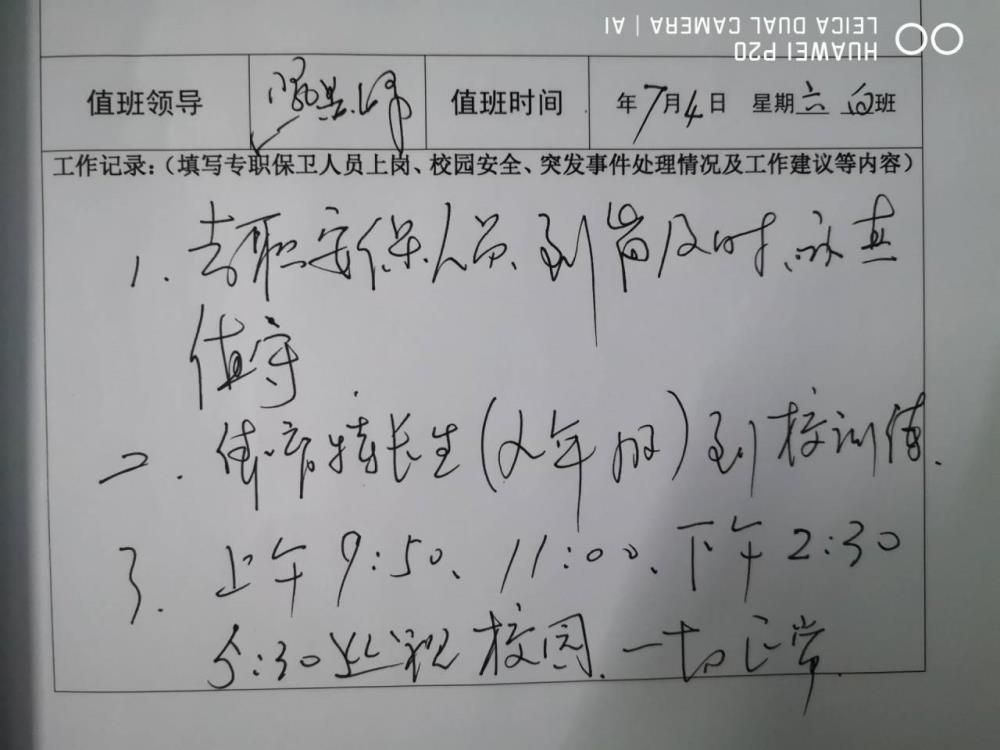 HUAWEI P20
LEICA DUAL CAMERA | AI
值班领导 值班时间 年7月4日 星期六 白班
工作记录：（填写专职保卫人员上岗、校园安全、突发事件处理情况及工作建议等内容）
1. 专职安保人员到岗及时、认真
值守
二. 体育特长生（八年级）到校训练.
3. 上午9:50、11:00、下午2:30
5:30巡视校园.一切正常.